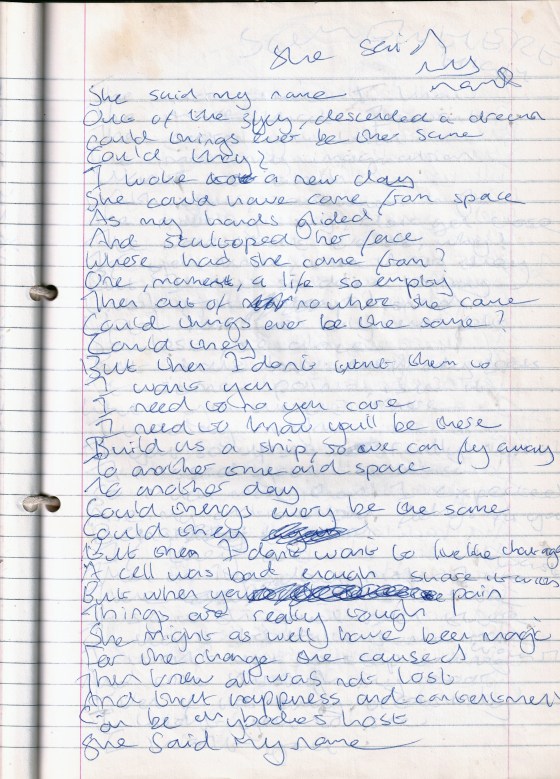 She said my name
She said my name
Out of the sky, descended a dream
Could things ever be the same
Could they?
I woke to a new day
She could have came from space
As my hands glided
And scultopped her face
Where had she came from?
One, moment, a life so empty
Then out of nowhere she came
Could things ever be the same?
Could they
But then I don't want them to
I want you
I need to no you care
I need to know you'll be there
Build us a ship, so we can fly away
To another time and space
To another day
Could things every be the same
Could they
But then I don't want to the
A cell was bad enough share it with
But when you pain
Things are really tough
She might as well have been magic
For the change she caused
Then knew all was not lost
And that happiness and contentment
Can be anybodies host
She Said My name